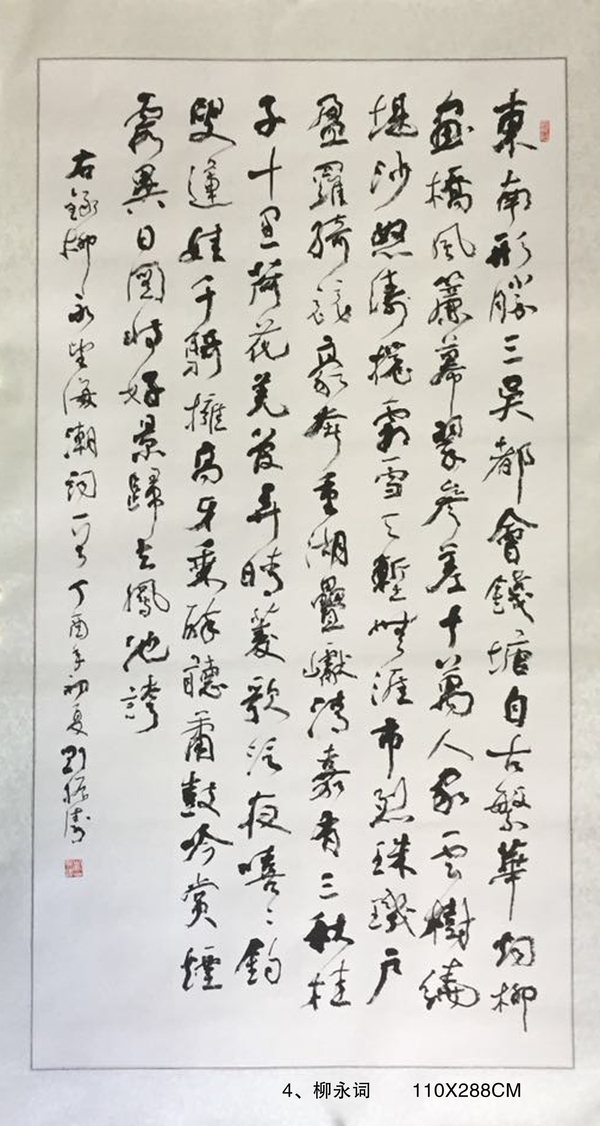 東南形勝三吳都會錢塘自古繁華烟柳
畫橋風簾幕翠參差十萬人家雲樹繞
堤沙怒濤捲霜雪天塹無涯市烈珠璣戶
盈羅綺競豪奢重湖疊巘清嘉有三秋桂
子十里荷花羌管弄晴菱歌泛夜嘻〻釣
叟蓮娃千騎擁高牙乘醉聽蕭鼓吟賞煙
霞異日圖將好景歸去鳳池誇
右錄柳永望海潮詞一首丁酉年初夏劉振濤
4、柳永词 110X288CM